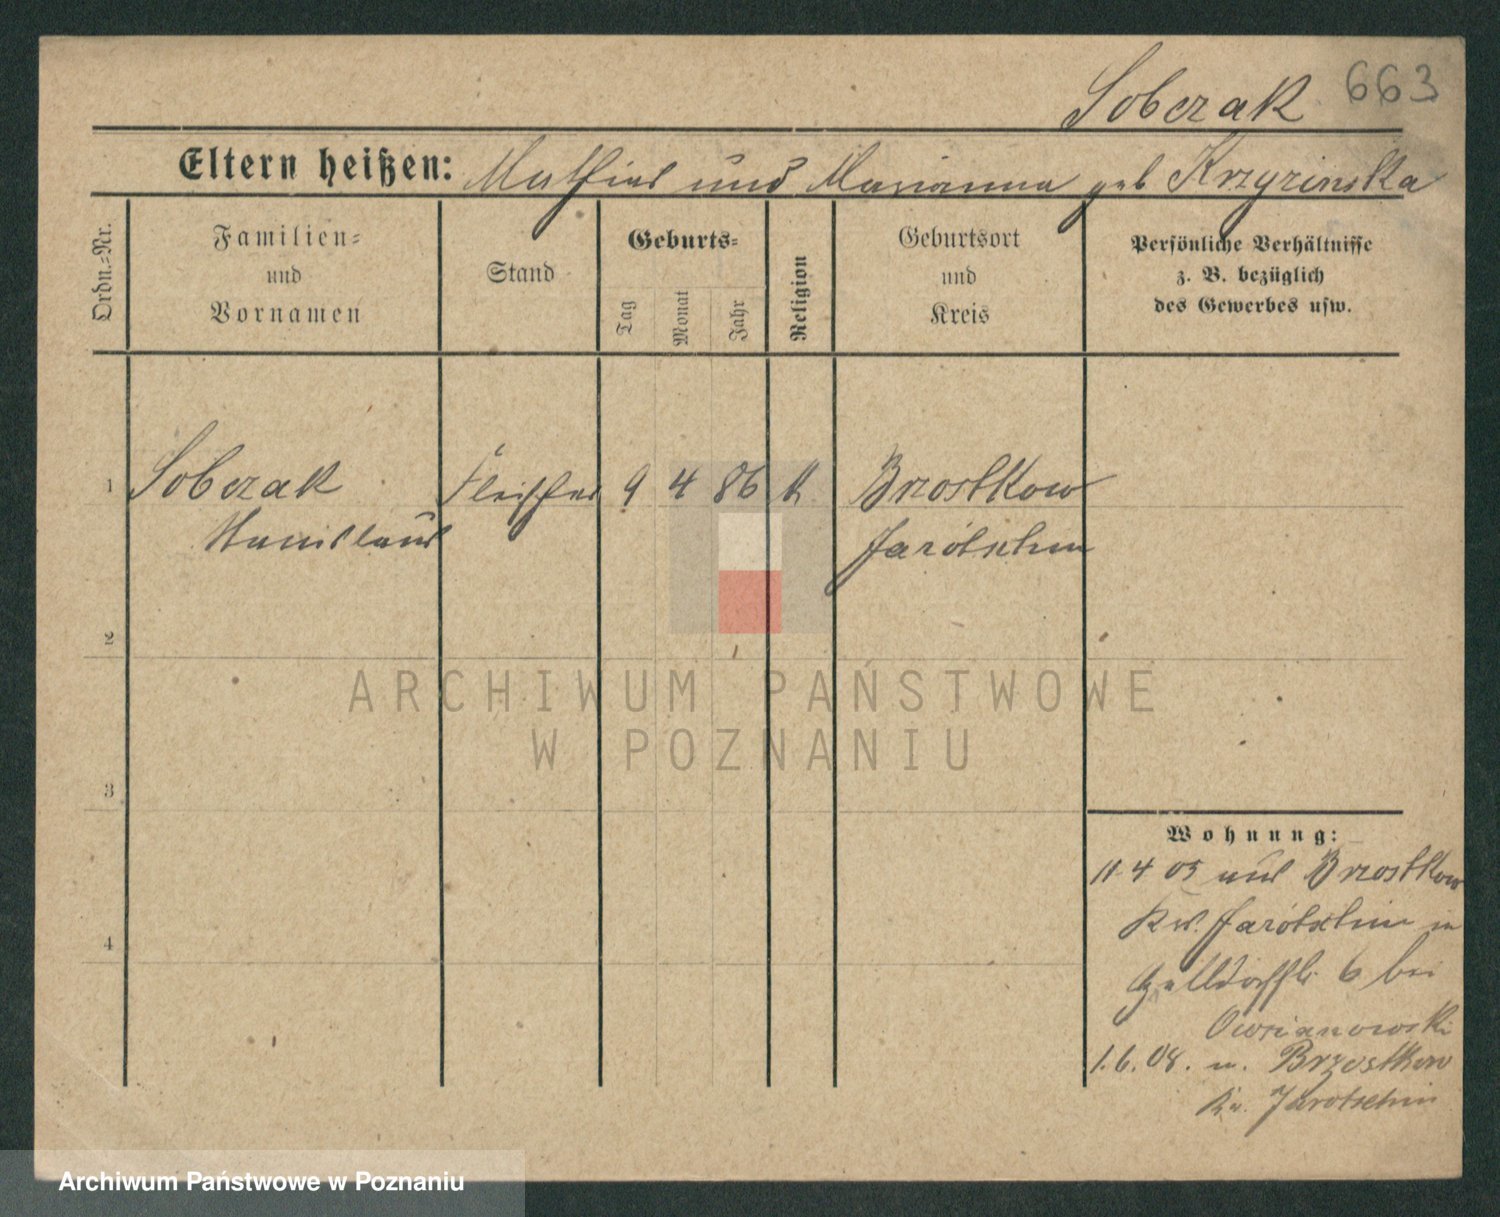 663
Sobczak
Eltern heißen: Mathias und Marianna geb Krzyzinska
Ordn.-Nr.
Familien-
und
Vornamen
Stand
Geburts-
Tag
Monat
Jahr
Religion
Geburtsort
und
Kreis
Persönliche Verhältnisse
z. B. bezüglich
des Gewerbes usw.
1 Sobczak Fleischer 9 4 86 k Brzostkow
Stanislaus Jarotschin
2
3
4
Wohnung:
11 4 05 aus Brzostkow
Krs. Jarotschin in
6 bei
Owsianowski
1.6.08. n. Brzostkow
Kr. Jarotschin
ARCHIWUM PAŃSTWOWE
W POZNANIU
Archiwum Państwowe w Poznaniu